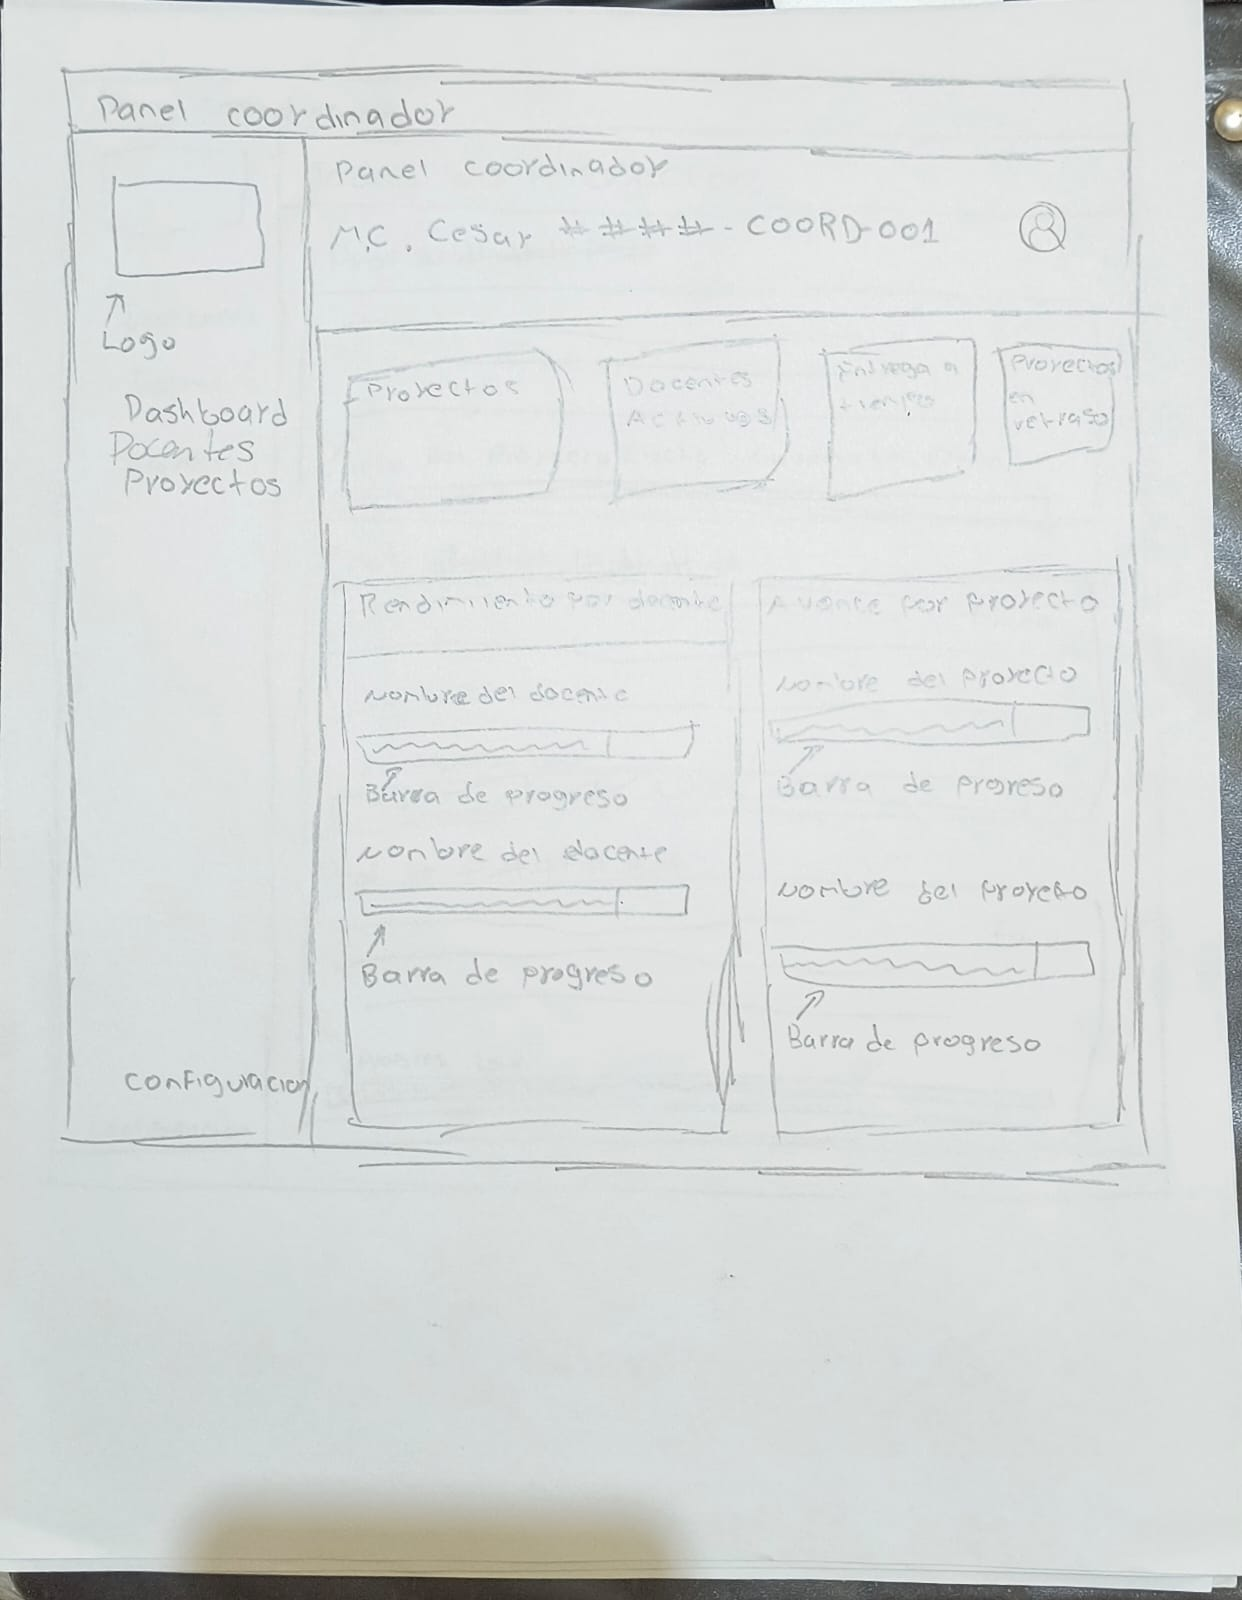 Panel coordinador
Panel coordinador
M.C. Cesar #### - COORD-001
Logo
Dashboard
Docentes
Proyectos
Configuracion
Proyectos
Docentes
Activos
Entrega a
tiempo
Proyectos
en
retraso
Rendimiento por docente
Nombre del docente
Barra de progreso
Nombre del docente
Barra de progreso
Avance por proyecto
Nombre del proyecto
Barra de progreso
Nombre del proyecto
Barra de progreso